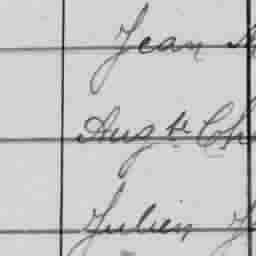 Jean
Aug te Ch
Julien J